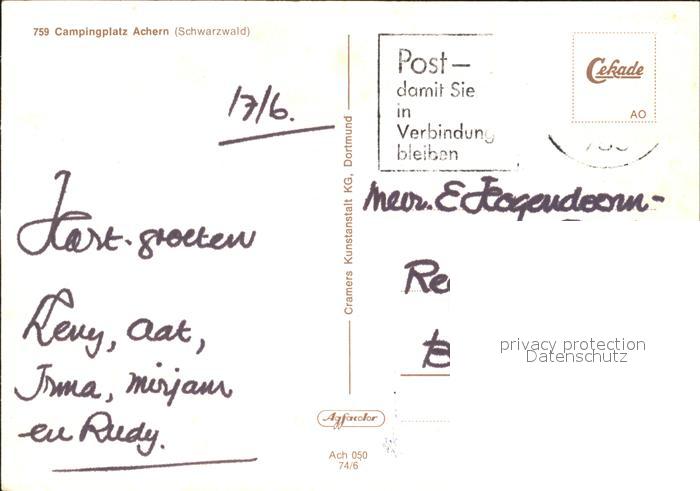 759 Campingplatz Achern (Schwarzwald)
17/6.
Hart. groeten
Leny, Aat,
Irma, Mirjam
en Rudy.
Cramers Kunstanstalt KG, Dortmund
Agfacolor
Ach 050
74/6
Post—
damit Sie
in
Verbindung
bleiben
Cekade
AO
Mevr. E Hogendoorn-
Re
privacy protection
Datenschutz